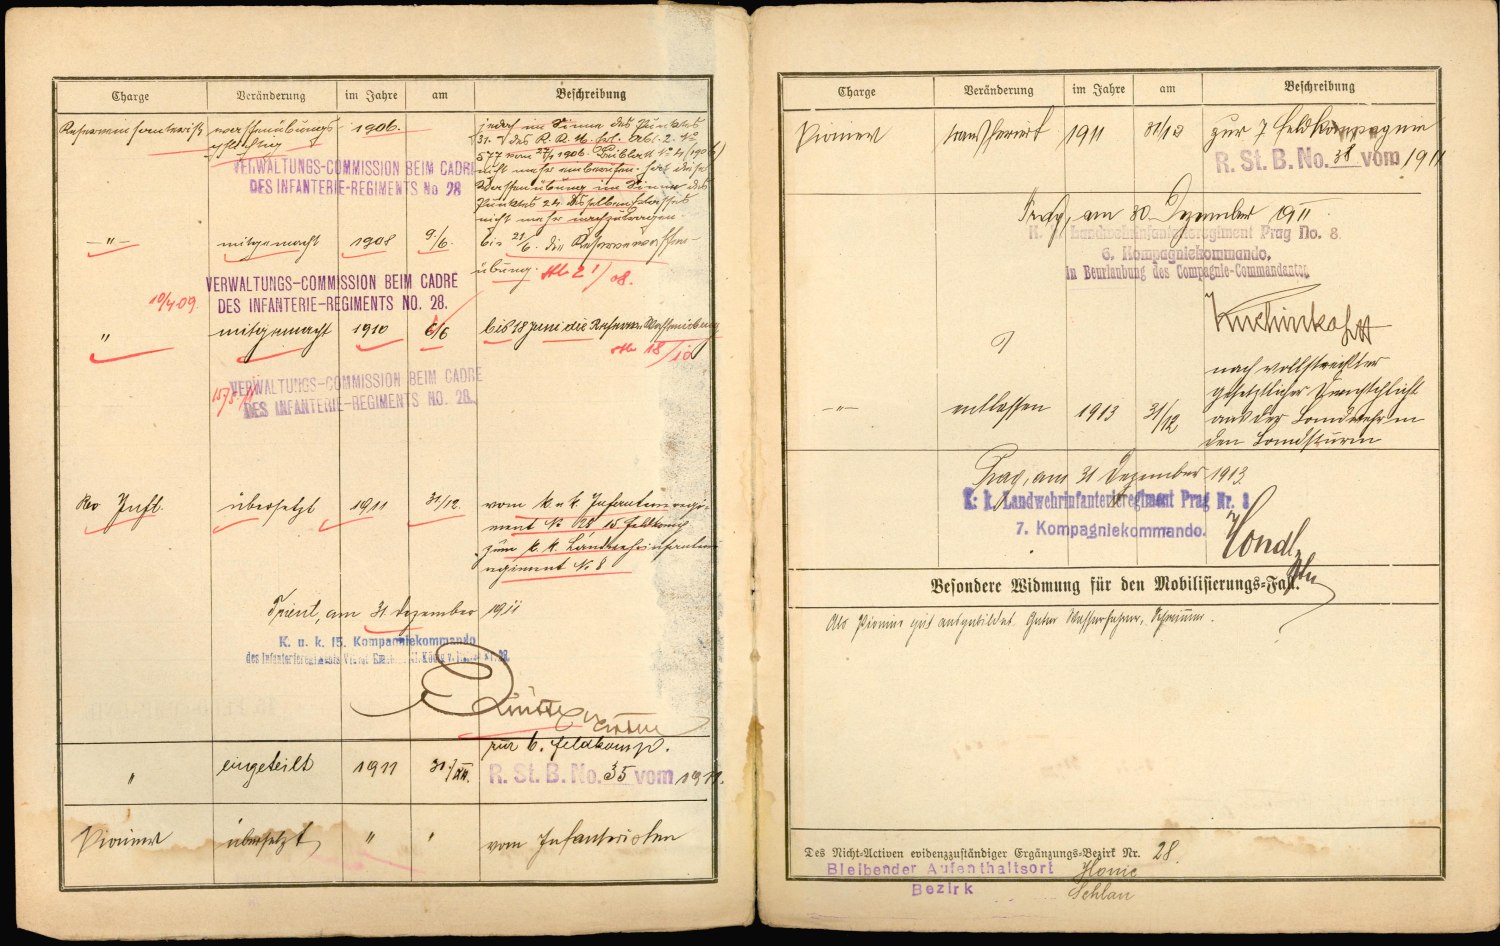 Charge Veränderung im Jahre am Beschreibung
Reserveinfanterist waffenübungs- 1906. jedoch im Sinne des Punktes
pflichtig 31. des
577 vom 1906. Beiblatt
VERWALTUNGS-COMMISSION BEIM CADRE nicht mehr einberufen. hat diese
DES INFANTERIE-REGIMENTS No 28 Waffenübung im Sinne des
Punktes 24 desselben Erlasses
nicht mehr nachzutragen.
—"— mitgemacht 1908 9./6. bis 21/6. die Reservewaffen-
übung.
VERWALTUNGS-COMMISSION BEIM CADRE
DES INFANTERIE-REGIMENTS NO. 28.
10/4 09.
" mitgemacht 1910 6/6 bis 18 Juni die Reserve Waffenübung
VERWALTUNGS-COMMISSION BEIM CADRE
DES INFANTERIE-REGIMENTS NO. 28.
Res Inft. übersetzt 1911 31/12. vom k. u. k. Infanterieregi-
ment No 28 15. Feldkomp
zum k. k. Landwehrinfanterie
regiment No 8
Trient, am 31. Dezember 1911
K. u. k. 15. Kompagniekommando
" eingeteilt 1911 31./XII. zur 6. Feldkomp.
R. St. B. No. 35 vom 1911.
Pionier übersetzt " " vom Infanteristen
Charge Veränderung im Jahre am Beschreibung
Pionier transferiert 1911 31/12 zur 7 Feldkompagnie
R. St. B. No. 38 vom 1911
Prag, am 30. Dezember 1911.
K. k. Landwehrinfanterieregiment Prag No. 8.
6. Kompagniekommando.
In Beurlaubung des Compagnie-Commandanten
nach vollstreckter
gesetzlicher Dienstpflicht
—"— entlassen 1913 31/12 aus der Landwehr in
den Landsturm
Prag, am 31 Dezember 1913.
K. k. Landwehrinfanterieregiment Prag Nr. 8
7. Kompagniekommando.
Besondere Widmung für den Mobilisierungs-Fall.
Als Pionier gut ausgebildet. Guter Wasserfahrer, Schwimmer.
Des Nicht-Activen evidenzzuständiger Ergänzungs-Bezirk Nr. 28.
Bleibender Aufenthaltsort
Bezirk Schlan